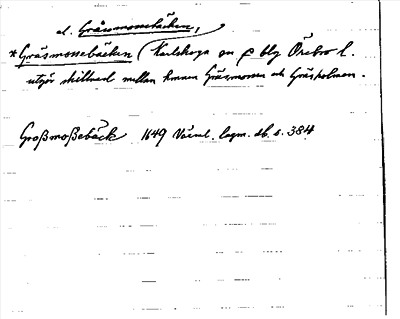 el. Gråsmossebäcken,
*Gräsmossebäcken (Karlskoga sn
utgör skillnad mellan hmnen Gräsmossen och Gräsholmen.
Großmoßebäck 1649 Värml. lagm. db. s. 384